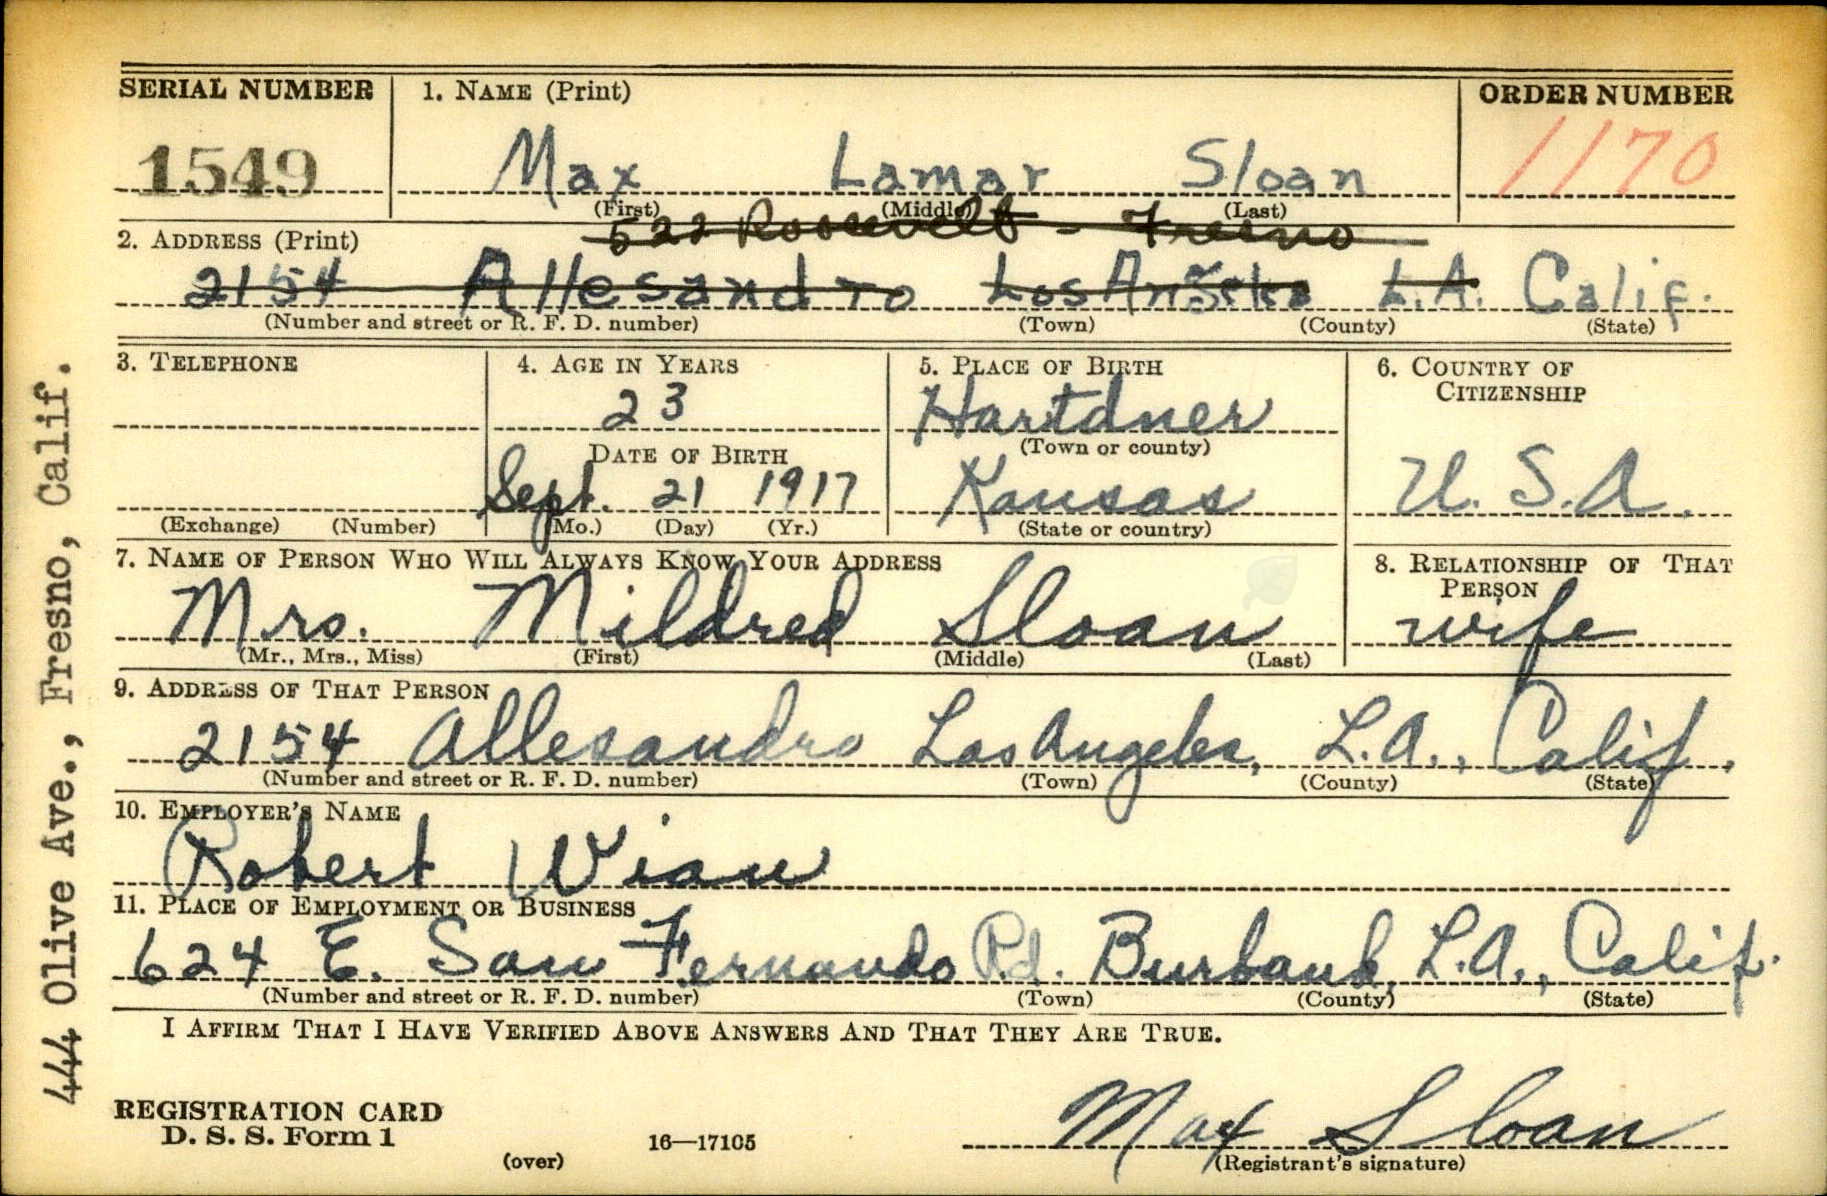 SERIAL NUMBER
1. NAME (Print)
ORDER NUMBER
1549
Max Lamar Sloan
1170
(First) (Middle) (Last)
522 Roosevelt - Fresno
2. ADDRESS (Print)
2154 Allesandro Los Angeles L.A. Calif.
(Number and street or R. F. D. number) (Town) (County) (State)
3. TELEPHONE
4. AGE IN YEARS
5. PLACE OF BIRTH
6. COUNTRY OF
CITIZENSHIP
23
Hartdner
(Town or county)
DATE OF BIRTH
Sept. 21 1917
Kansas
U. S. A.
(Exchange) (Number)
(Mo.) (Day) (Yr.)
(State or country)
7. NAME OF PERSON WHO WILL ALWAYS KNOW YOUR ADDRESS
8. RELATIONSHIP OF THAT
PERSON
Mrs. Mildred Sloan
wife
(Mr., Mrs., Miss) (First) (Middle) (Last)
9. ADDRESS OF THAT PERSON
2154 Allesandro Los Angeles, L.A., Calif.
(Number and street or R. F. D. number) (Town) (County) (State)
10. EMPLOYER'S NAME
Robert Wian
11. PLACE OF EMPLOYMENT OR BUSINESS
624 E. San Fernando Rd. Burbank, L.A., Calif.
(Number and street or R. F. D. number) (Town) (County) (State)
I AFFIRM THAT I HAVE VERIFIED ABOVE ANSWERS AND THAT THEY ARE TRUE.
REGISTRATION CARD
D. S. S. Form 1
(over)
16—17105
Max Sloan
(Registrant's signature)
444 Olive Ave., Fresno, Calif.